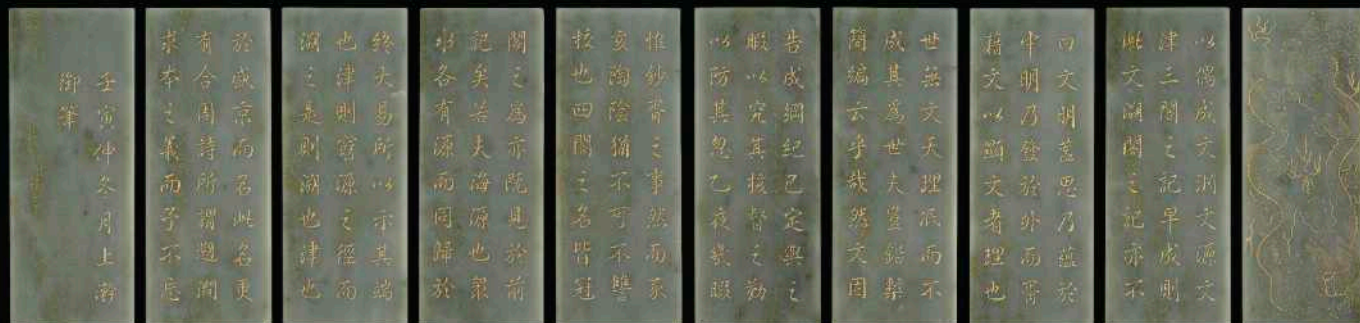 以偶成文淵文源文
津三閣之記早成則
此文溯閣之記亦不
曰文明蓋思乃蘊於
中明乃發於外而胥
藉文以顯文者理也
世無文天理泯而不
成其為世夫豈鉛槧
簡編云乎哉然文固
告成綱紀已定與之
暇以究其核督之勤
以防其忽乙夜幾暇
惟鈔胥之事然而豕
亥陶陰猶不可不讐
校也四閣之名皆冠
閣之為亦既見於前
記矣若夫海源也眾
水各有源而同歸於
終大易所以示其端
也津則窮源之徑而
溯之是則溯也津也
於盛京而名此名更
有合周詩所謂遡澗
求本之義而予不忘
壬寅仲冬月上澣
御筆